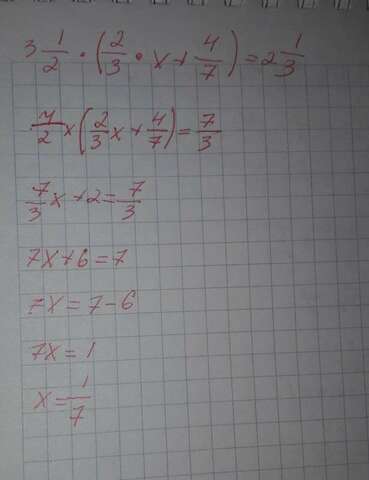 3 1/2 · (2/3 · x + 4/7) = 2 1/3
7/2 x (2/3 x + 4/7) = 7/3
7/3 x + 2 = 7/3
7x + 6 = 7
7x = 7 - 6
7x = 1
x = 1/7